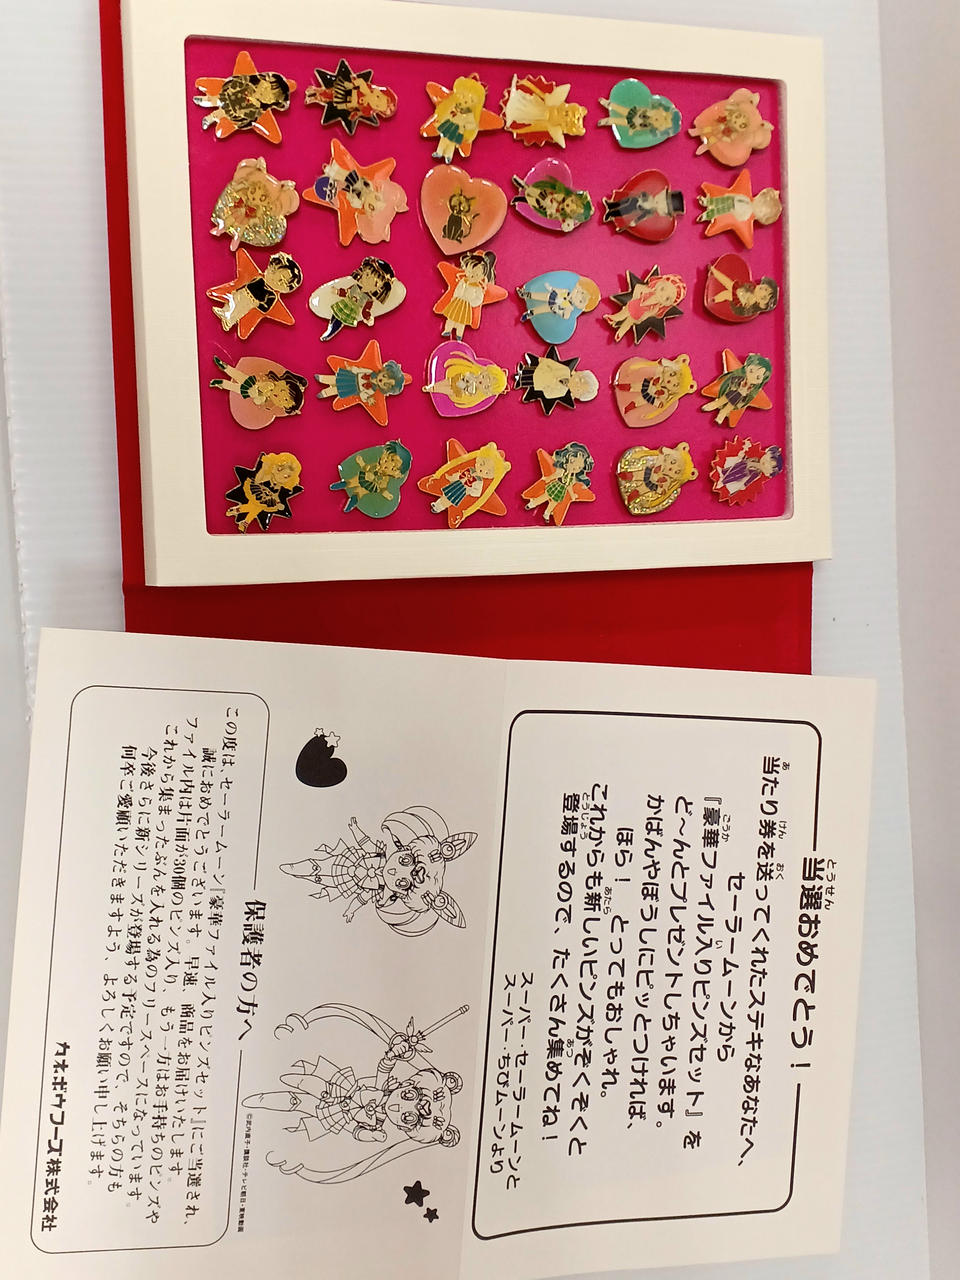 当選おめでとう！
とうせん
当たり券を送ってくれたステキなあなたへ、
あ けん おく
セーラームーンから
『豪華ファイル入りピンズセット』を
ごうか い
ど〜んとプレゼントしちゃいます。
かばんやぼうしにピッとつければ、
ほら！ とってもおしゃれ。
これからも新しいピンズがぞくぞくと
あたら
登場するので、たくさん集めてね！
とうじょう あつ
スーパー・セーラームーンと
スーパー・ちびムーンより
保護者の方へ
この度は、セーラームーン『豪華ファイル入りピンズセット』にご当選され、
誠におめでとうございます。早速、商品をお届けいたします。
ファイル内は片面が30個のピンズ入り、もう一方はお手持ちのピンズや
これから集まったぶんを入れる為のフリースペースになっています。
今後さらに新シリーズが登場する予定ですので、そちらの方も
何卒ご愛願いただきますよう、よろしくお願い申し上げます。
カネボウフーズ株式会社
©武内直子・講談社・テレビ朝日・東映動画